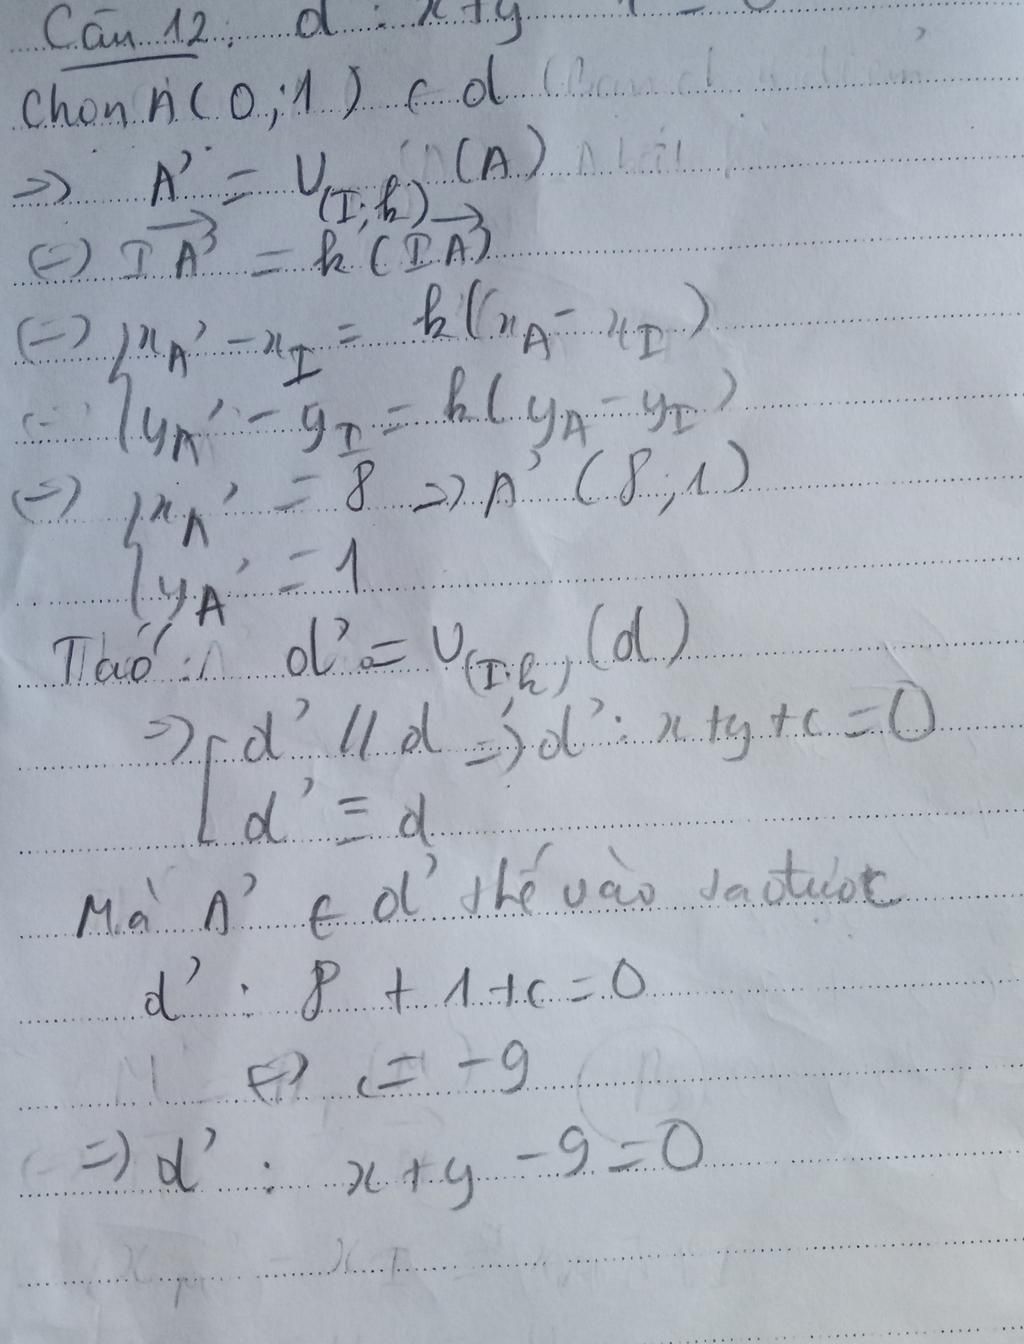 Câu 12: d : x + y
Chọn A ( 0 ; 1 ) ∈ d
=> A' = V(I;k) (A)
(=) IA' = k (IA)
(=) { xA' - xI = k ( xA - xI )
{ yA' - yI = k ( yA - yI )
(=) { xA' = 8 => A' ( 8 ; 1 )
{ yA' = 1
Ta có : d' = V(I;k) (d)
=> [ d' // d => d' : x + y + c = 0
[ d' ≡ d
Mà A' ∈ d' thế vào ta được
d' : 8 + 1 + c = 0
(=) c = -9
=> d' : x + y - 9 = 0